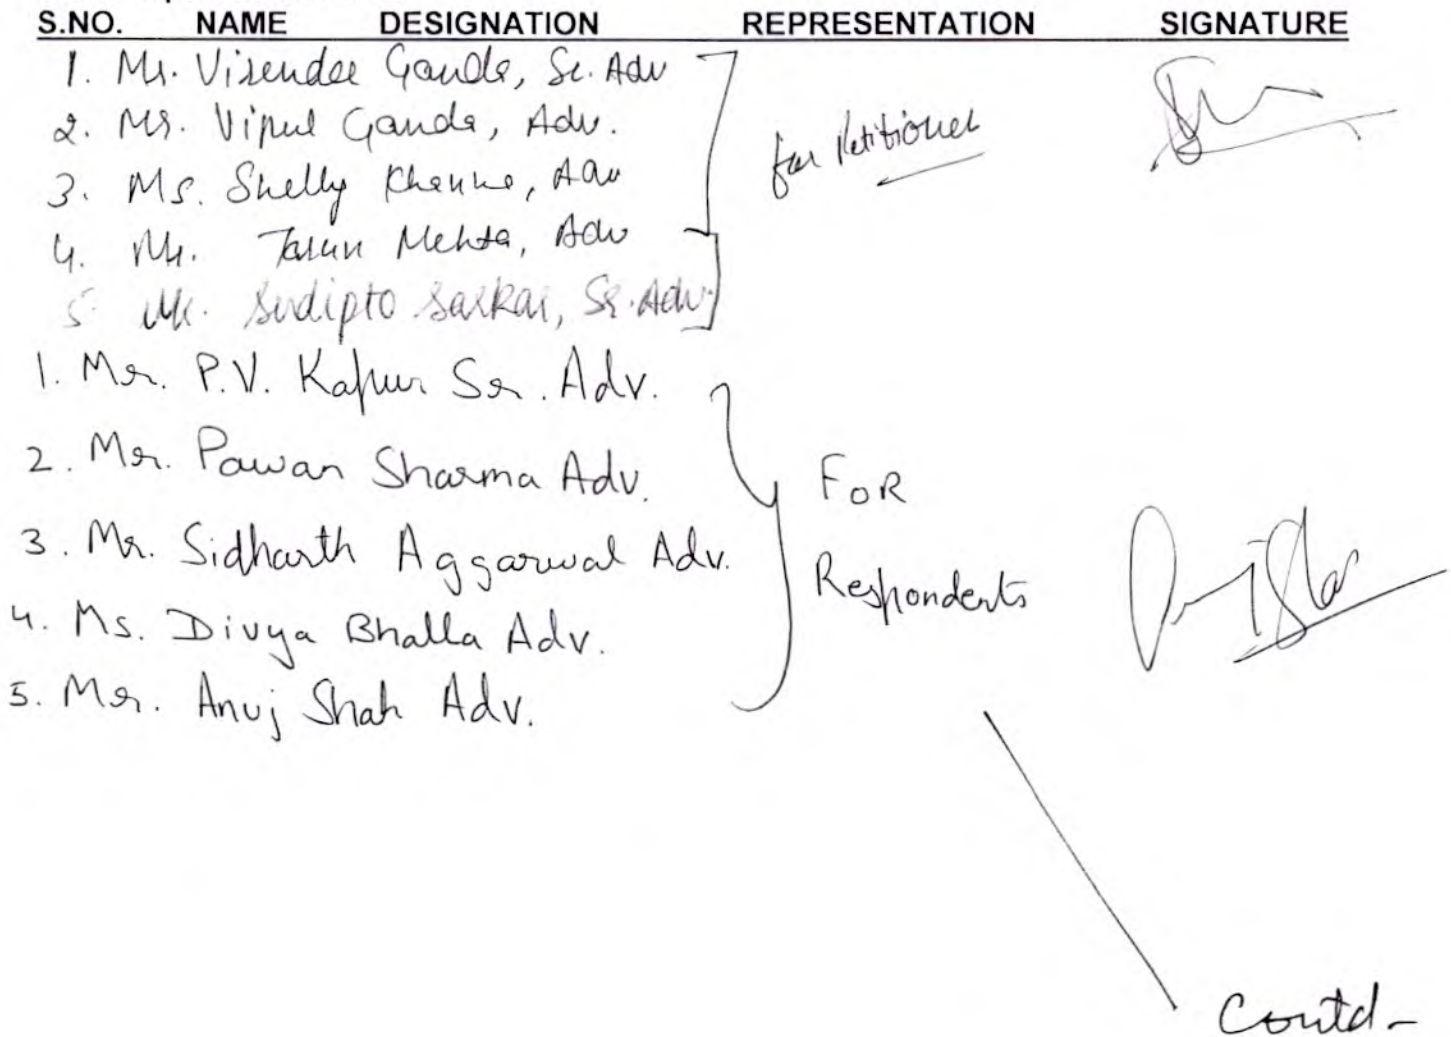 S.NO. NAME DESIGNATION REPRESENTATION SIGNATURE
1. Mr. Virender Ganda, Sr. Adv
2. Mr. Vipul Ganda, Adv.
3. Ms. Shelly Khanna, Adv
for Petitioner
4. Mr. Tarun Mehta, Adv
5 Mr. Sudipto Sarkar, Sr. Adv.
1. Mr. P.V. Kapur Sr. Adv.
2. Mr. Pawan Sharma Adv.
3. Mr. Sidharth Aggarwal Adv.
4. Ms. Divya Bhalla Adv.
5. Mr. Anuj Shah Adv.
FOR
Respondents
Contd-